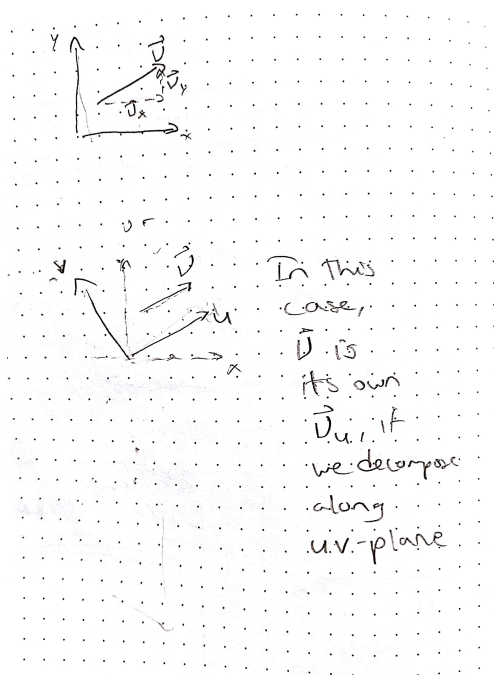 y
v⃗
v⃗y
v⃗x
x
or
v
v⃗
u
x
In this
case,
v⃗ is
its own
v⃗u, if
we decompose
along
u.v.-plane